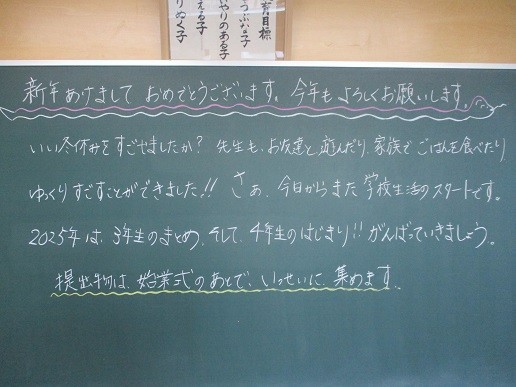 育目標
うぶな子
いやりのある子
える子
りぬく子
新年あけまして おめでとうございます。今年も よろしくお願いします。
いい冬休みをすごせましたか? 先生も、お友達と 遊んだり、家族で ごはんを食べたり
ゆっくりすごすことができました!! さぁ、今日からまた 学校生活のスタートです。
2025年は、3年生のまとめ、そして、4年生のはじまり!! がんばっていきましょう。
提出物は、始業式のあとで、いっせいに、集めます。